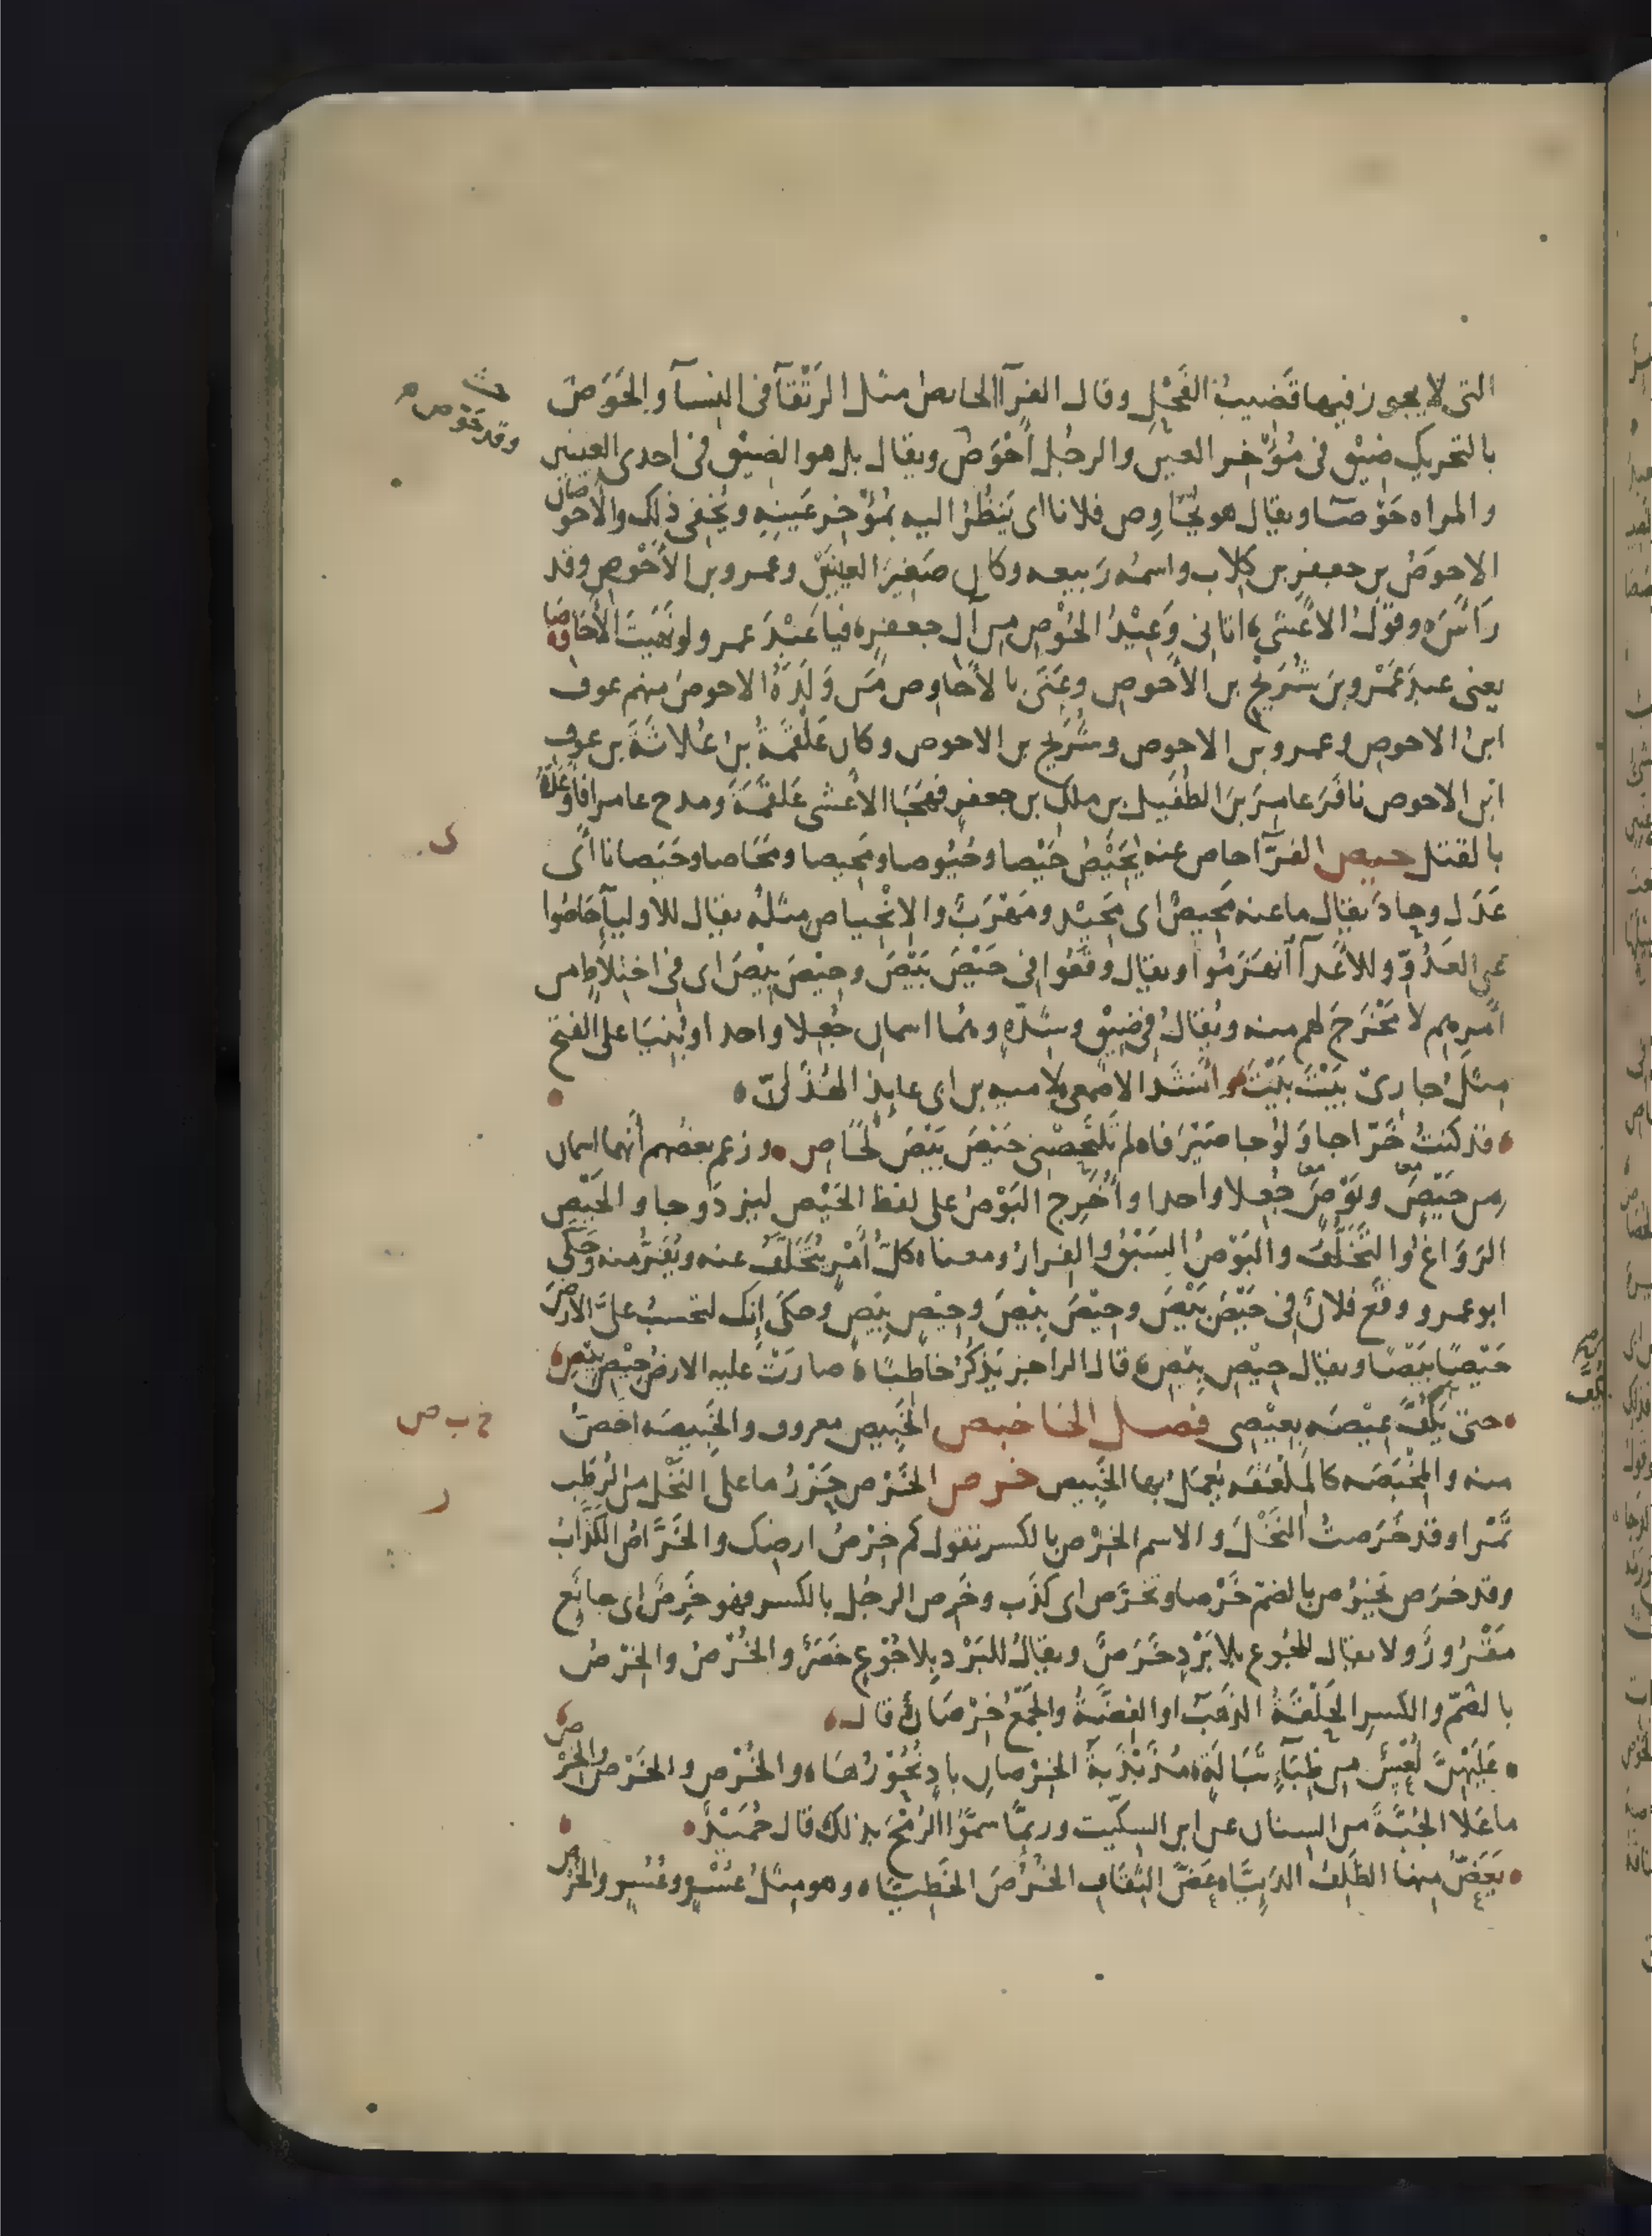 التى لا يجوز فيها قَضيبُ الفَحْلِ وقال الفرآ الحايصُ مثل الرَتْقآ فى النسآ والحَوَصُ
وقد حَوِص
بالتحريك ضِيْق فى مُؤْخِر العين والرجُل أَحْوَصُ ويقال بل هو الضِيْق فى احدى العينين
والمراه حَوْصآ ويقال هو يُحَاوِص فلانا اى يَنظُرُ اليه بمُؤْخِر عَينِهِ ويُخْفِى ذلِك والأحوصان
الاحوَصُ بن جعفر بن كِلاب واسمُه رَبيعه وكان صَغيرَ العينَيْن وعمرو بن الأَحْوصِ وقد
رَأَسَ وقَوْلُ الاعْشَى اتانى وَعِيْدُ الحُوْصِ من آل جعفرٍ فيا عَبْدَ عمرو لو نَهيتَ الأَحَاوِصَا
يعنى عبدَ عَمْرو بنَ شُرَيْحِ بن الأَحوص وعَنَى بالأَحاوِص مَن وَلَدَهُ الاحوصُ منهم عوف
ابنُ الاحوصِ وعمرو بن الاحوص وشُرَيح بن الاحوص وكان عَلْقَمَةُ بنُ عُلاثَةَ بن عوفِ
ابن الاحوص نافَرَ عامِرَ بنَ الطُفَيل بن ملك بن جعفرٍ فهَجَا الأعشى عَلْقَمَةَ ومدح عامرا فأوعَدُوهُ
ى
بالقتل حيص الفرّا حاص عنه يَحِيْصُ حَيْصا وحُيُوصا ومَحِيصا ومَحَاصا وحَيَصانا أَى
عَدَل وحادَ يقال ما عنه مَحِيصٌ اى مَحِيْد ومَهْرَبٌ والانْحِياص مثلُه يقال للاوليآ حَاصُوا
عن العَدُوّ وللاعْدآ انهَزَمُوا ويقال وقَعُوا فى حَيْصَ بَيْصَ وحِيْصَ بِيْصَ اى فى اختِلاطٍ من
أمرهِم لا مَخْرَجَ لهم منه ويُقالُ فى ضِيْق وشِدّةٍ وهُما اسمان جُعِلا واحدا وبُنِيَا على الفتح
مِثلُ جارى بَيْتَ بَيْتَ وانشَد الاصمعى لامية بن ابى عايذ الهُذَلىّ
قد كنتُ خَرّاجا وَلُوجا صَيْرَفا لم تَلْتَحِصْنى حَيْصَ بَيْصَ لَحَاصِ وزعم بعضُهم أنَهما اسمان
مِن حَيْصٍ وبَوْصٍ جُعِلا واحدا واُخْرِج البَوْصُ على لفظ الحَيْص ليزدَوِجا والحَيْص
الرَوَاغُ والتَّخَلُّف والبَوْصُ السَبْقُ والفِرارُ ومعناه كلّ أمْرٍ يُتَخَلَّفُ عنه ويُفَرُّ منه وحَكَى
ابو عمرو وقَع فلانٌ فى حَيْصَ بَيْصَ وحِيْصَ بِيْصَ وحِيْصٍ بِيْصٍ وحكَى إنك لتحسبُ عَلىَّ الارْضَ
حَيْصًا بَيْصًا ويقال حِيْصِ بِيْصِ قال الراجز يَذْكُرُ خاطبًا صارَتْ عليه الارضُ حِيْصِ بِيْصِ
خ ب ص
حتى يَكُفَّ عِيْصَه بعِيْصِى فصل الخا خبص الخَبِيص معروف والخَبِيصَه اخَصُّ
منه والمِخْبَصَه كالمِلْعَقَه يُعْمَلُ بها الخَبِيص خرص الخَرْص حَزْرُ ما على النَخْل من الرُطَب
ر
تَمْرا وقد خَرَصتُ النَخْلَ والاسم الخِرْص بالكسر تقول كم خِرْصُ ارضِك والخَرَّاصُ الكَذّابُ
وقد خَرَص يَخْرُصُ بالضمّ خَرْصا وتَخَرَّص اى كَذَب وخَرِص الرجُل بالكسر فهو خَرِصٌ اى جايِع
مَقْرُورٌ ولا يقال للجُوع بلا بَرْدٍ خَرَصٌ ويقالُ للبَرْد بِلا جُوْعٍ خَصَرٌ والخُرْصُ والخِرْصُ
بالضمّ والكسر الحَلْقَةُ الذَهَب او الفِضَّةُ والجَمْعُ خِرْصَانٌ قال
عَلَيْهِنَّ لُعْسٌ مِن ظِبَآءِ تَبَالَةٍ مُذَبْذَبَةُ الخِرْصانِ بادٍ نُحُوْرُهَا والخُرْص والخَرْص والخِرْص
ما عَلا الجُبَّةَ من السنان عن ابن السكيت وربَّما سمَّوا الرُمْحَ بذلك قال حُمَيْدٌ
يَعَضّ منها الظَلِفُ الدَئِيَّا عَضَّ الثِقَافِ الخُرُصَ الخَطِيَّا وهو مِثلُ عُسْرٍ وعُسُر والخُرْص